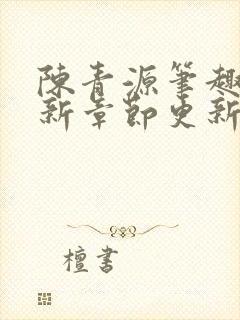 陳青源筆趣
新章節更新
檀書